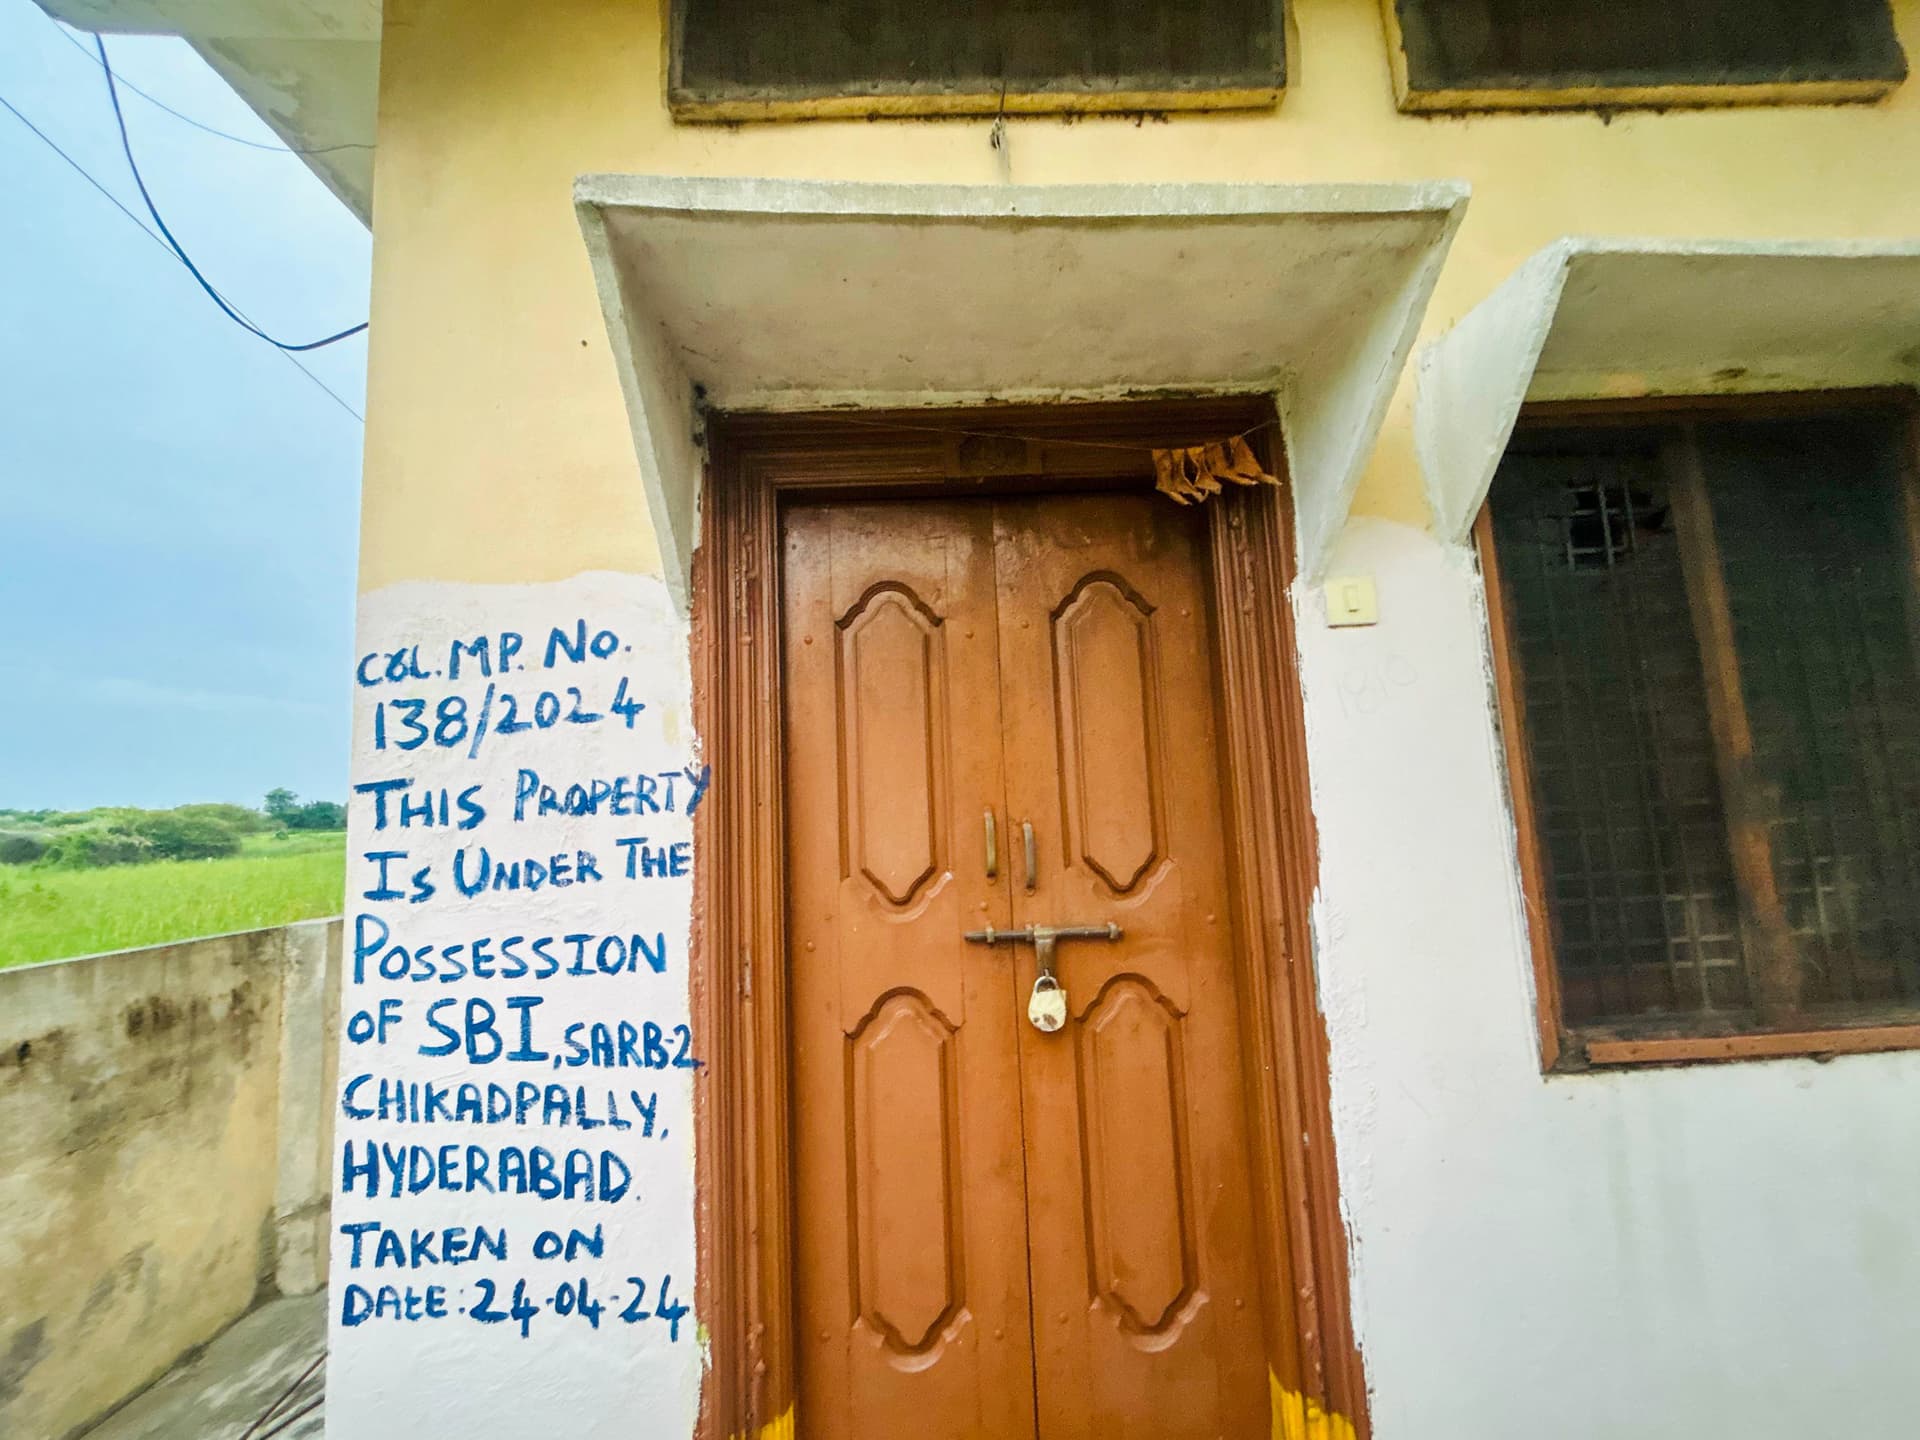 CRL.MP. NO.
138/2024
THIS PROPERTY
IS UNDER THE
POSSESSION
OF SBI, SARB-2
CHIKADPALLY,
HYDERABAD.
TAKEN ON
DATE: 24-04-24
1810